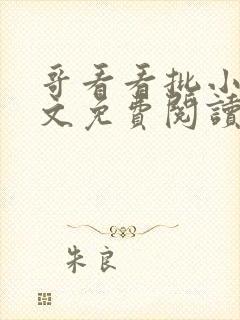 哥看看批小
文免費閱讀
朱良